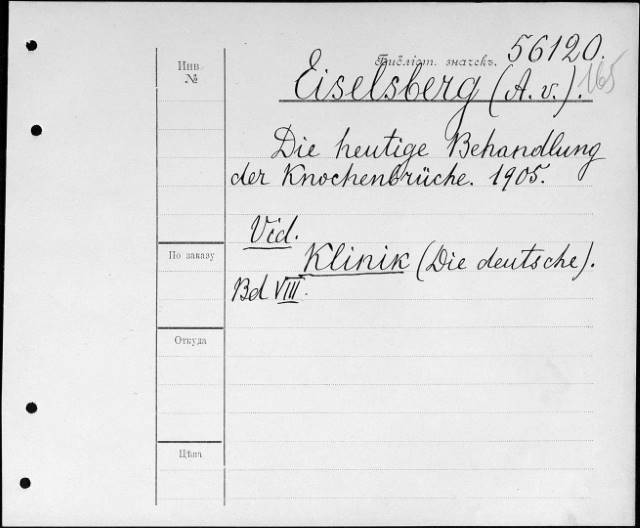 Инв.
№
Библіот. значекъ. 56120.
Eiselsberg (A. v.). 165
Die heutige Behandlung
der Knochenbrüche. 1905.
Vid.
Klinik (Die deutsche).
Bd VIII.
По заказу
Откуда
Цѣна